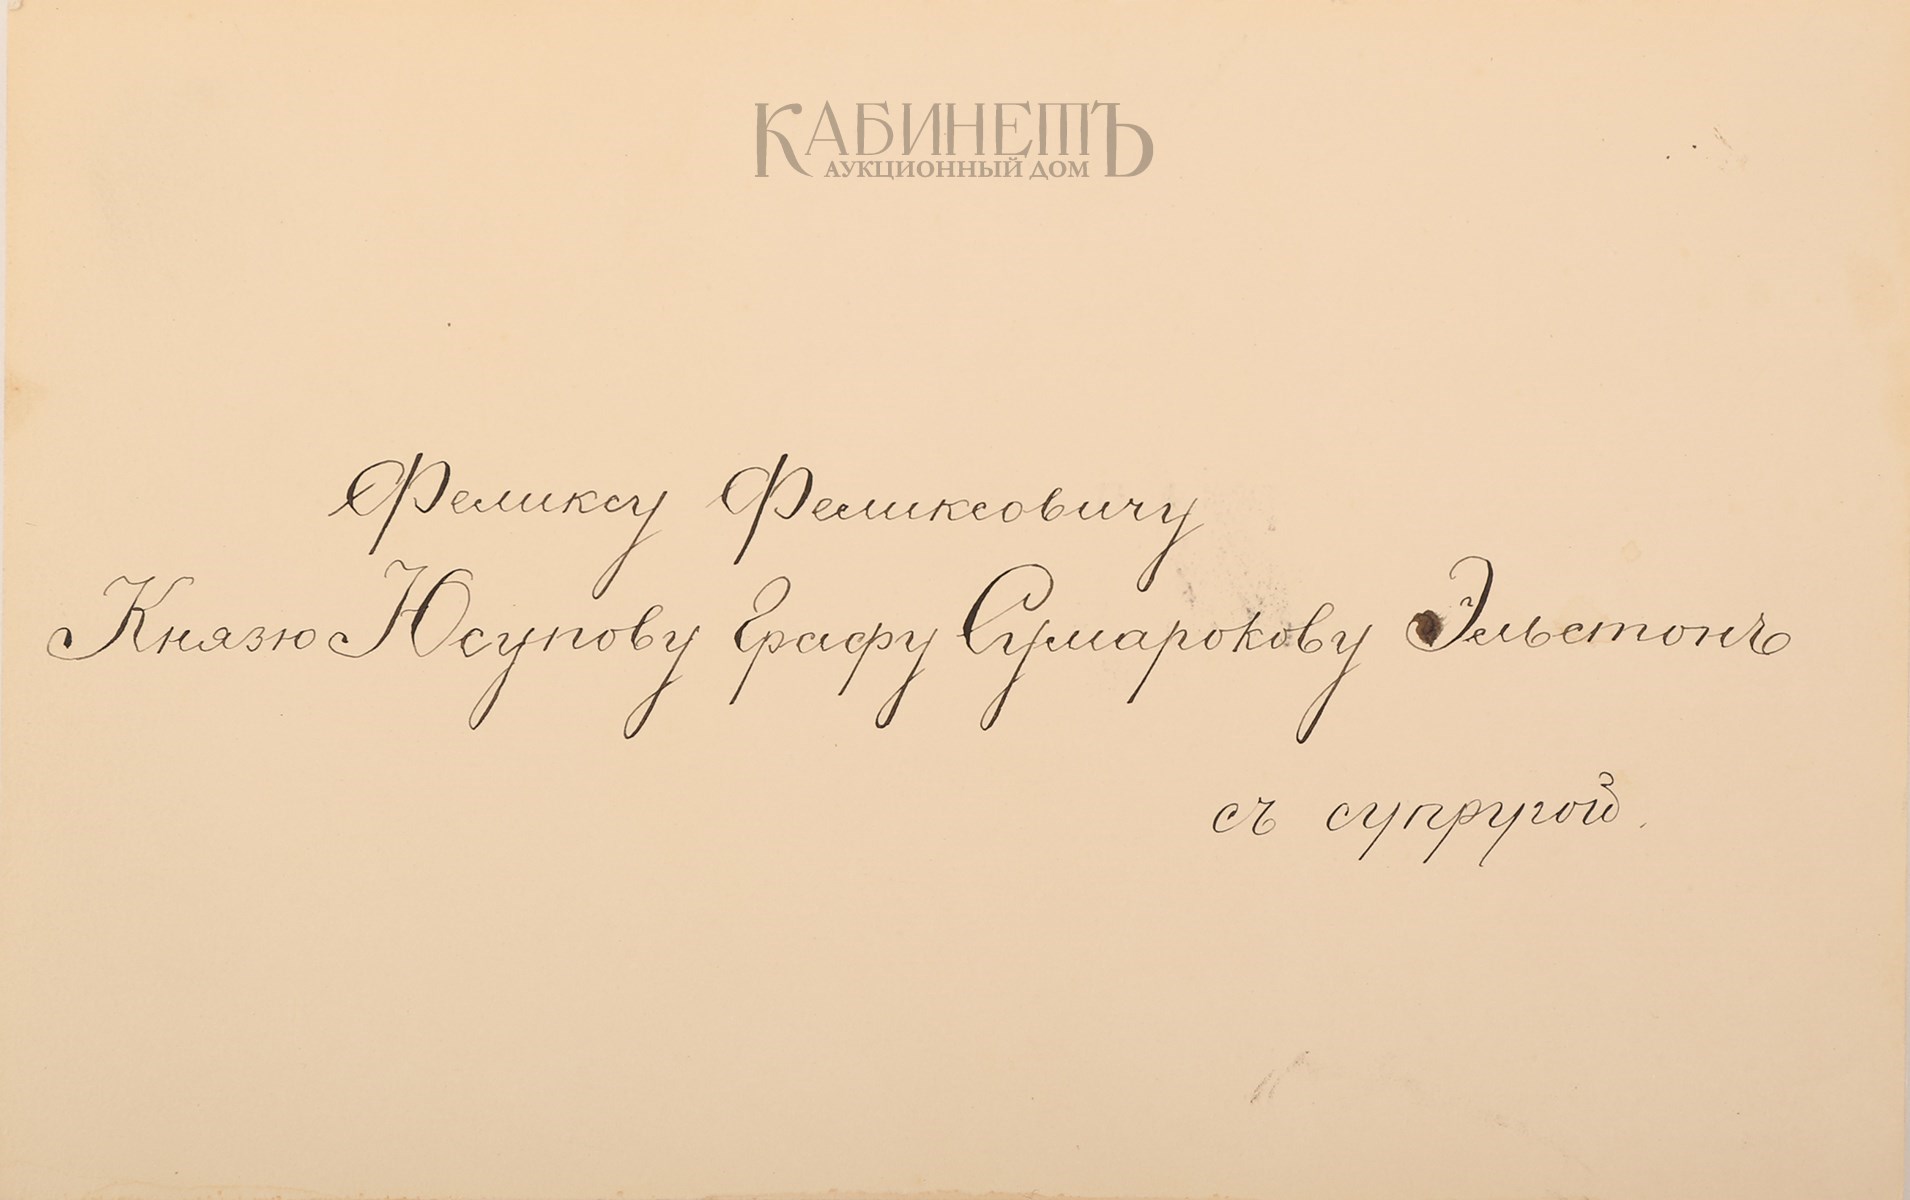 КАБИНЕТЪ
АУКЦИОННЫЙ ДОМ
Феликсу Феликсовичу
Князю Юсупову Графу Сумарокову Эльстонъ
съ супругой.